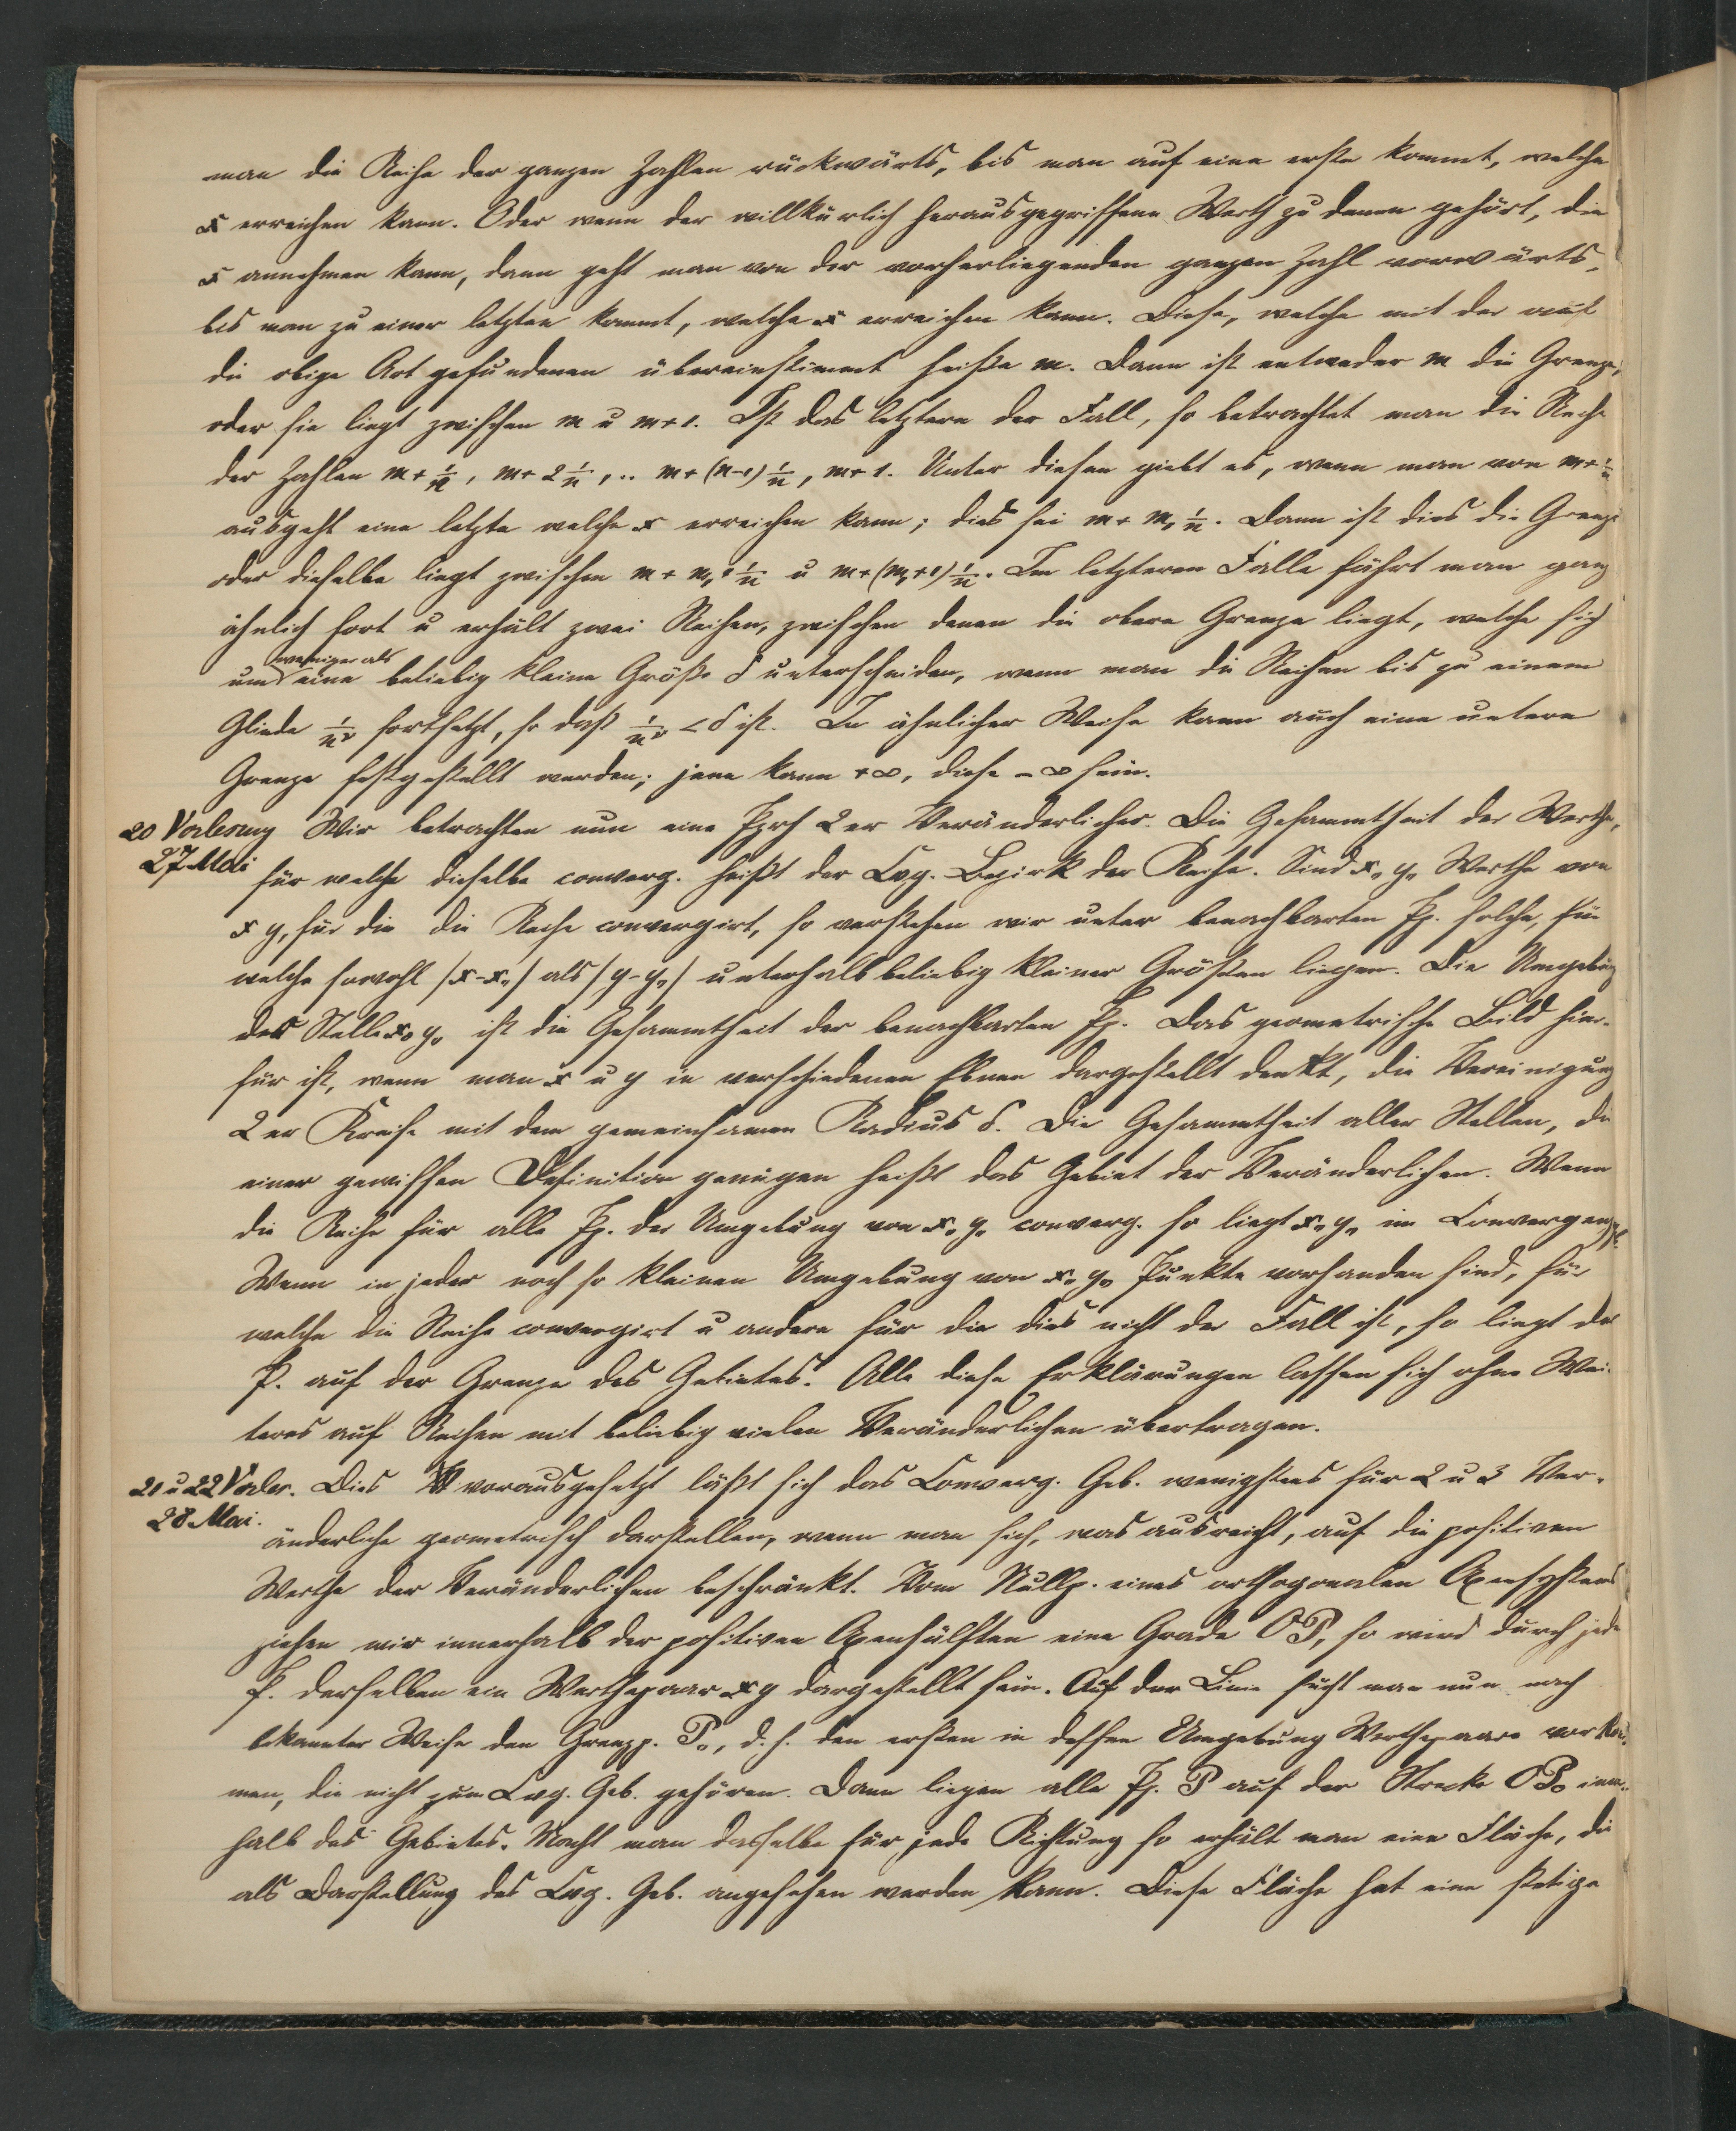 man die Reihe der ganzen Zahlen rückwärts, bis man auf eine erste kommt, welche
x erreichen kann. Oder wenn der willkürlich herausgegriffene Werth zu denen gehört, die
x annehmen kann, dann geht man von der vorherliegenden ganzen Zahl vorwärts,
bis man zu einer letzten kommt, welche x erreichen kann. Diese, welche mit der auf
die obige Art gefundenen übereinstimmt heiße m. Dann ist entweder m die Grenze,
oder sie liegt zwischen m u m+1. Ist das letztere der Fall, so betrachtet man die Reihe
der Zahlen m + 1/n, m + 2 1/n, .. m + (n-1) 1/n, m + 1. Unter diesen giebt es, wenn man von m + 1/n
ausgeht eine letzte welche x erreichen kann; dies sei m + m₁ 1/n. Dann ist dies die Grenze
oder dieselbe liegt zwischen m + m₁ 1/n u m + (m₁+1) 1/n. Im letzteren Falle fährt man ganz
ähnlich fort u erhält zwei Reihen, zwischen denen die obere Grenze liegt, welche sich
um weniger als eine beliebig kleine Größe δ unterscheiden, wenn man die Reihen bis zu einem
Gliede 1/nᵛ fortsetzt, so daß 1/nᵛ < δ ist. In ähnlicher Weise kann auch eine untere
Grenze festgestellt werden; jene kann +∞, diese -∞ sein.
20 Vorlesung Wir betrachten nun eine 2er Veränderlicher. Die Gesammtheit der Werthe,
27 Mai für welche dieselbe converg. heißt der Cvg. Bezirk der Reihe. Sind x₀ y₀ Werthe von
x y, für die die Reihe convergirt, so verstehen wir unter benachbarten Pp. solche, für
welche sowohl |x-x₀| als |y-y₀| unterhalb beliebig kleiner Größen liegen. Die Umgebung
der Stelle x₀ y₀ ist die Gesammtheit der benachbarten Pp. Das geometrische Bild hier-
für ist, wenn man x u y in verschiedenen Ebnen dargestellt denkt, die Vereinigung
2er Kreise mit dem gemeinsamen Radius δ. Die Gesammtheit aller Stellen, die
einer gewissen Definition genügen heißt das Gebiet der Veränderlichen. Wenn
die Reihe für alle Pp. der Umgebung von x₀ y₀ converg. so liegt x₀ y₀ im Convergenz
Wenn in jeder noch so kleinen Umgebung von x₀ y₀ Punkte vorhanden sind, für
welche die Reihe convergirt u andere für die dies nicht der Fall ist, so liegt der
P. auf der Grenze des Gebietes. Alle diese Erklärungen lassen sich ohne Wei-
teres auf Reihen mit beliebig vielen Veränderlichen übertragen.
21 u 22 Vorles. Dies vorausgesetzt läßt sich das Converg. Geb. wenigstens für 2 u 3 Ver-
28 Mai. änderliche geometrisch darstellen, wenn man sich, was ausreicht, auf die positiven
Werthe der Veränderlichen beschränkt. Vom Nullp. eines orthogonalen Axensystems
ziehen wir innerhalb der positiven Axenhälften eine Grade OP, so wird durch jede
P. derselben ein Werthepaar x y dargestellt sein. Auf der Linie sucht man nun nach
bekannter Weise den Grenzp. P₀, d. h. den ersten in dessen Umgebung Werthepaare vorkom-
men, die nicht zum Cvg. Geb. gehören. Dann liegen alle Pp. P auf der Strecke OP₀ inner-
halb des Gebietes. Macht man dasselbe für jede Richtung so erhält man eine Fläche, die
als Darstellung des Cvg. Geb. angesehen werden kann. Diese Fläche hat eine stetige